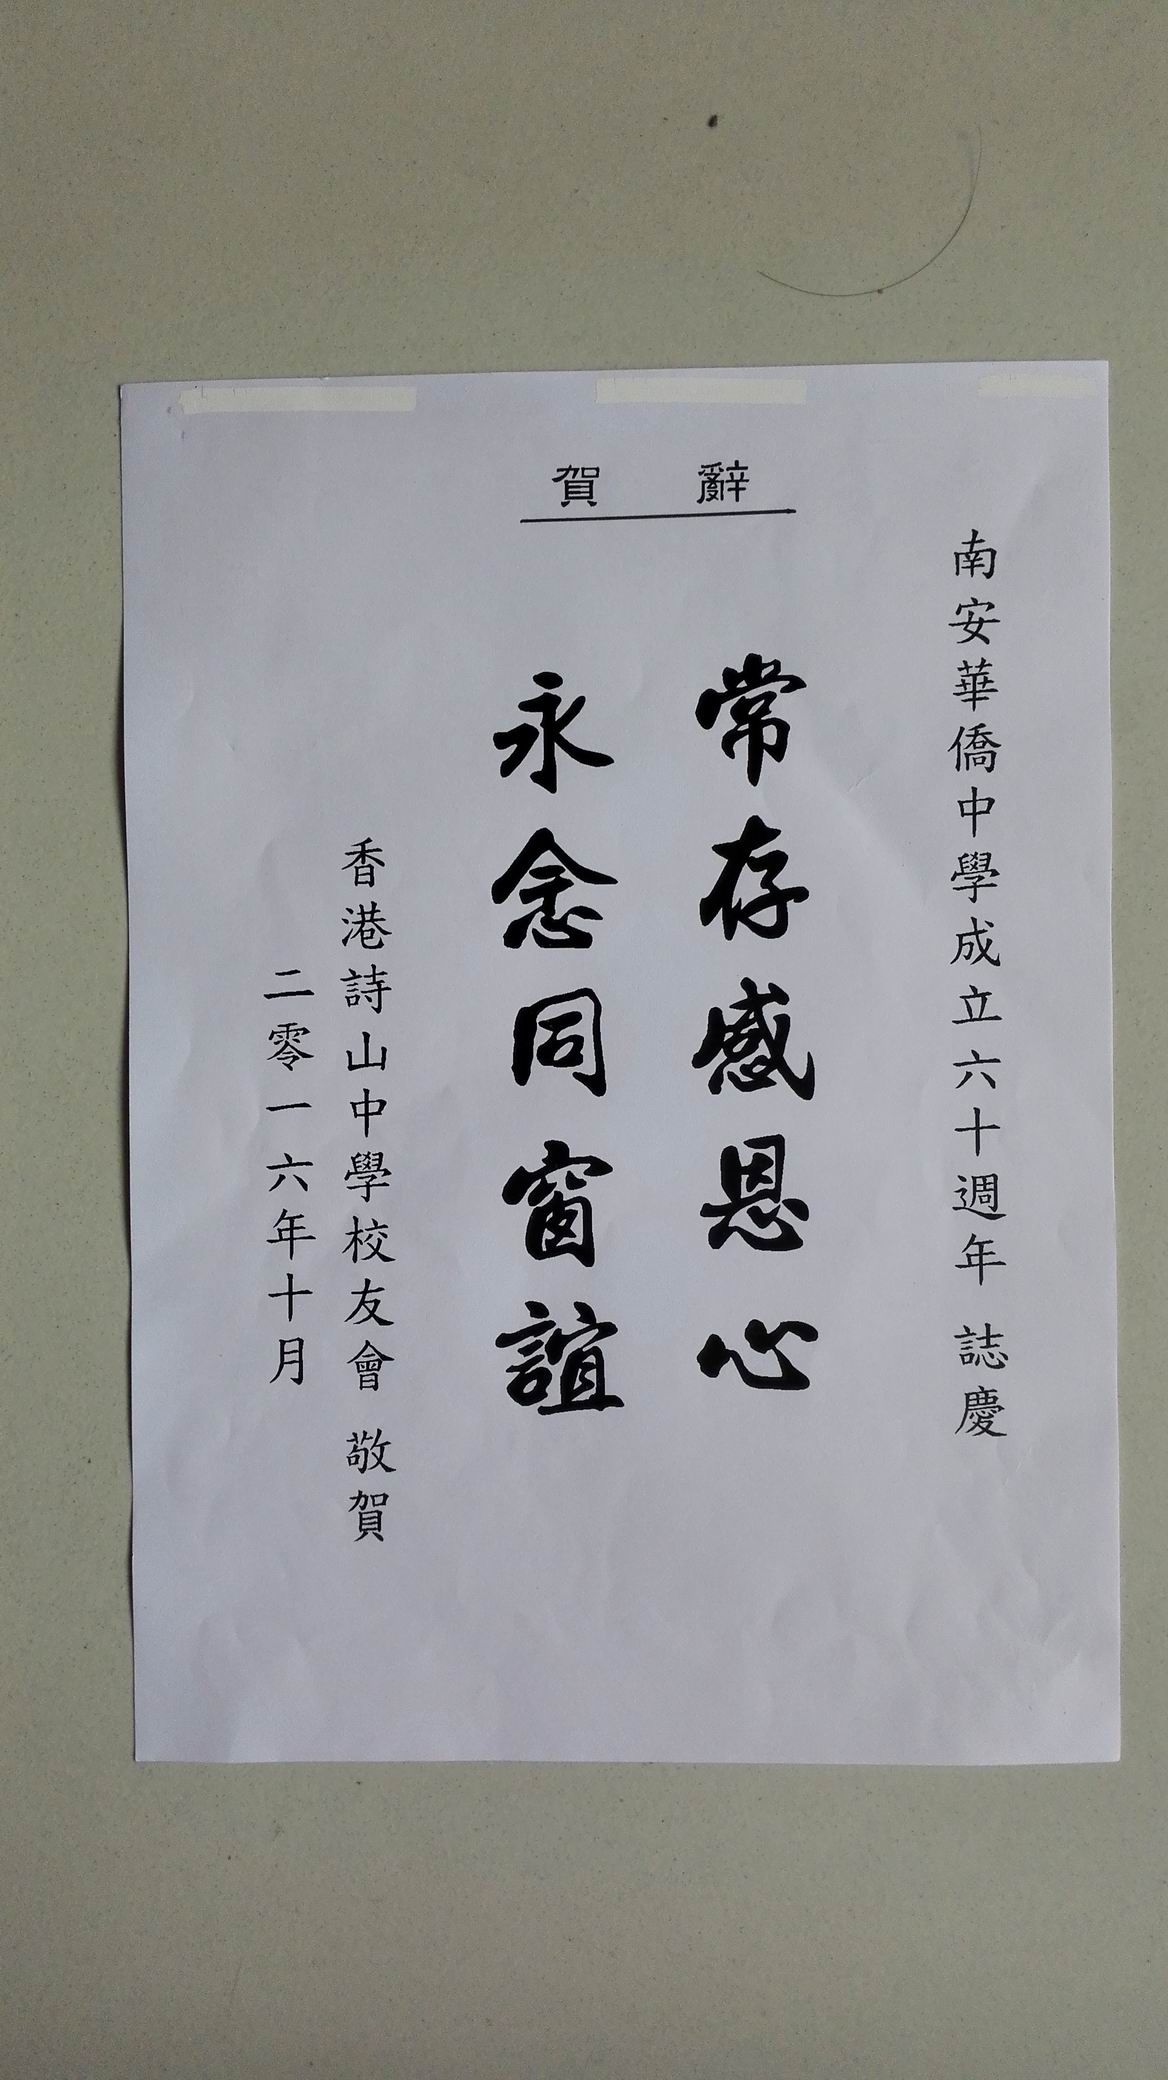 賀 辭
南安華僑中學成立六十週年 誌慶
常存感恩心
永念同窗誼
香港詩山中學校友會 敬賀
二零一六年十月